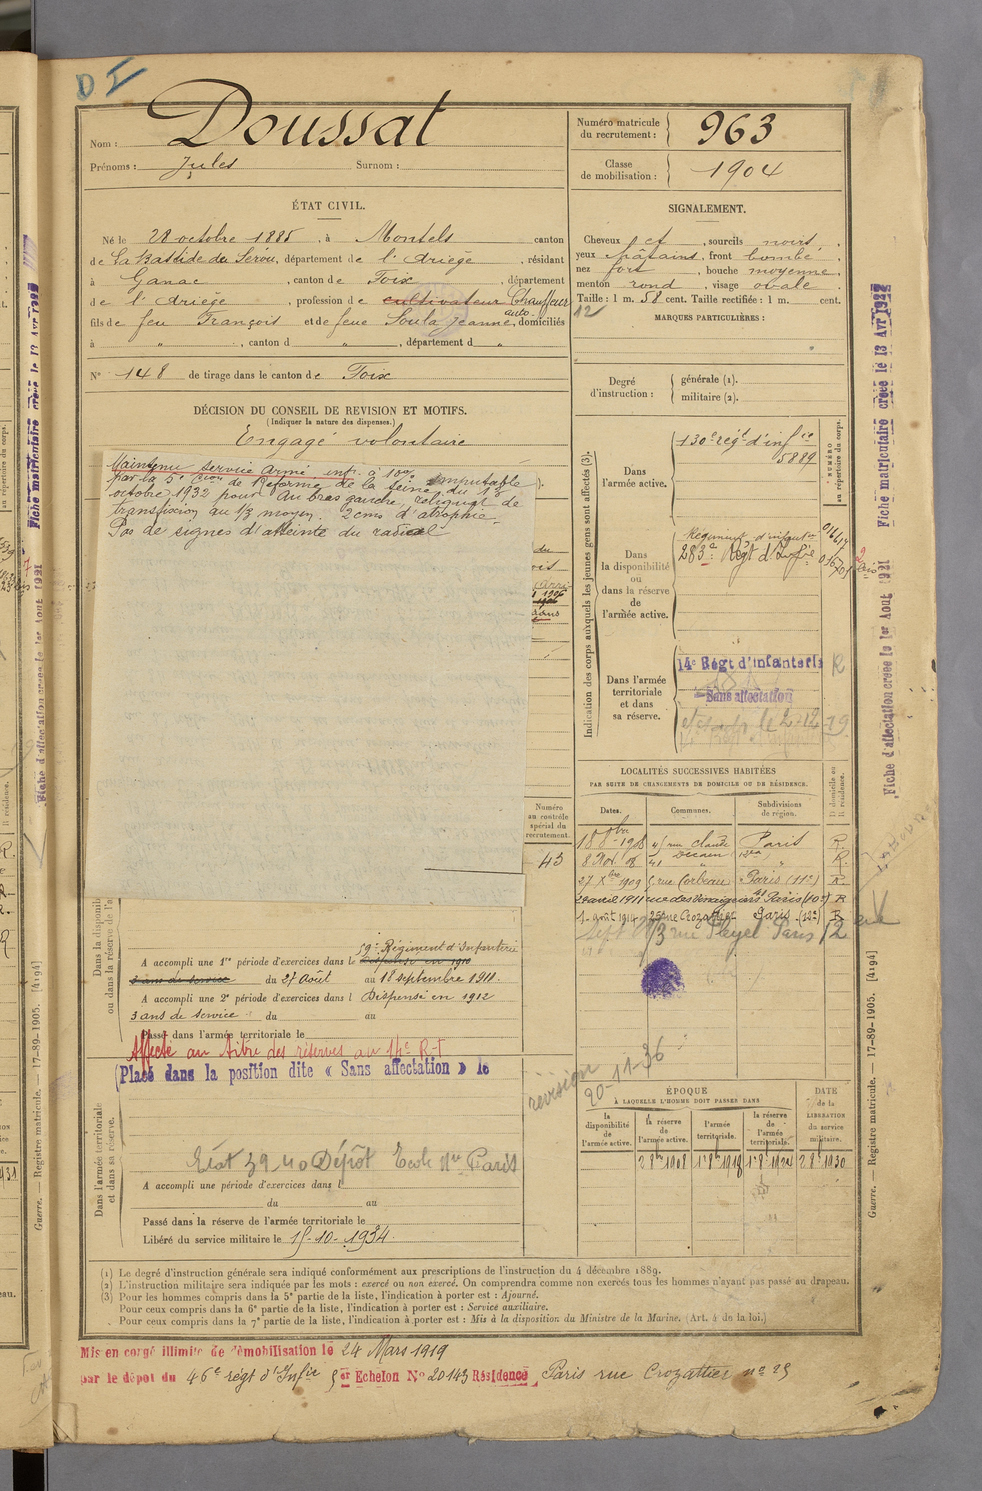 D I
Nom : Doussat
Prénoms : Jules Surnom :
Numéro matricule du recrutement : 963
Classe de mobilisation : 1904
ÉTAT CIVIL.
Né le 28 octobre 1885, à Montels canton
de La Bastide de Sérou, département de l'Ariège, résidant
à Ganac, canton de Foix, département
de l'Ariège, profession de cultivateur Chauffeur auto.
fils de feu François et de feue Soula Jeanne, domiciliés
à " , canton d " , département d "
N° 148 de tirage dans le canton de Foix
SIGNALEMENT.
Cheveux et , sourcils noirs,
yeux châtains, front bombé,
nez fort, bouche moyenne,
menton rond, visage ovale.
Taille : 1 m. 58 cent. Taille rectifiée : 1 m. cent.
12
MARQUES PARTICULIÈRES :
Degré d'instruction : générale (1). militaire (2).
DÉCISION DU CONSEIL DE REVISION ET MOTIFS.
(Indiquer la nature des dispenses.)
Engagé volontaire
Maintenu service armé inf. à 10% imputable
par la 5e Cion de Réforme de la Seine du 13
octobre 1932 pour Au bras gauche, reliquat de
transfixion au 1/3 moyen. 2 cms d'atrophie.
Pas de signes d'atteinte du radical
Indication des corps auxquels les jeunes gens sont affectés (3).
NUMÉRO au répertoire du corps.
Dans l'armée active.
130e régt d'infie
5889
Dans la disponibilité ou dans la réserve de l'armée active.
Régiment d'infant
283e Régt d'Infie
Dans l'armée territoriale et dans sa réserve.
14e Régt d'infanterie
Sans affectation
LOCALITÉS SUCCESSIVES HABITÉES
PAR SUITE DE CHANGEMENTS DE DOMICILE OU DE RÉSIDENCE.
Dates. Communes. Subdivisions de région. D domicile ou R résidence.
18 8bre 1908 45 rue Claude Decaen Paris 12e R.
8 Nov. 08 41 " " R.
27 Xbre 1909 5 rue Corbeau Paris (11e) R.
29 avril 1911 rue des Vinaigriers Paris (10e) R
1 août 1914 25 rue Crozatier Paris (12e) R
3 rue Pleyel Paris 12
Numéro au contrôle spécial du recrutement.
43
59e Régiment d'Infanterie
A accompli une 1re période d'exercices dans le Dispensé en 1910
3 ans de service du 27 Août au 18 septembre 1911.
A accompli une 2e période d'exercices dans l Dispensé en 1912
3 ans de service du au
Passé dans l'armée territoriale le
Affecté au titre des réserves au 14e R-I
(Placé dans la position dite « Sans affectation » le
révision 20-11-36
Dans l'armée territoriale et dans sa réserve.
Etat 39-40 Dépôt Ecole Paris
A accompli une période d'exercices dans l
du au
Passé dans la réserve de l'armée territoriale le
Libéré du service militaire le 15-10-1934.
ÉPOQUE
À LAQUELLE L'HOMME DOIT PASSER DANS
la disponibilité de l'armée active. la réserve de l'armée active. l'armée territoriale. la réserve de l'armée territoriale.
DATE de la LIBÉRATION du service militaire.
2 8bre 1908 1 8bre 1918 1 8bre 1924 2 8bre 1930
(1) Le degré d'instruction générale sera indiqué conformément aux prescriptions de l'instruction du 4 décembre 1889.
(2) L'instruction militaire sera indiquée par les mots : exercé ou non exercé. On comprendra comme non exercés tous les hommes n'ayant pas passé au drapeau.
(3) Pour les hommes compris dans la 5e partie de la liste, l'indication à porter est : Ajourné.
Pour ceux compris dans la 6e partie de la liste, l'indication à porter est : Service auxiliaire.
Pour ceux compris dans la 7e partie de la liste, l'indication à porter est : Mis à la disposition du Ministre de la Marine. (Art. 4 de la loi.)
Mis en congé illimité de démobilisation le 24 Mars 1919
par le dépôt du 46e régt d'Infie 5 er Echelon N° 20143 Résidence Paris rue Crozattier n° 25
Fiche matriculaire créée le 13 Avr 1922
Fiche d'affectation créée le 1er Aout 1921
Guerre. — Registre matricule. — 17-89-1905. [4194]